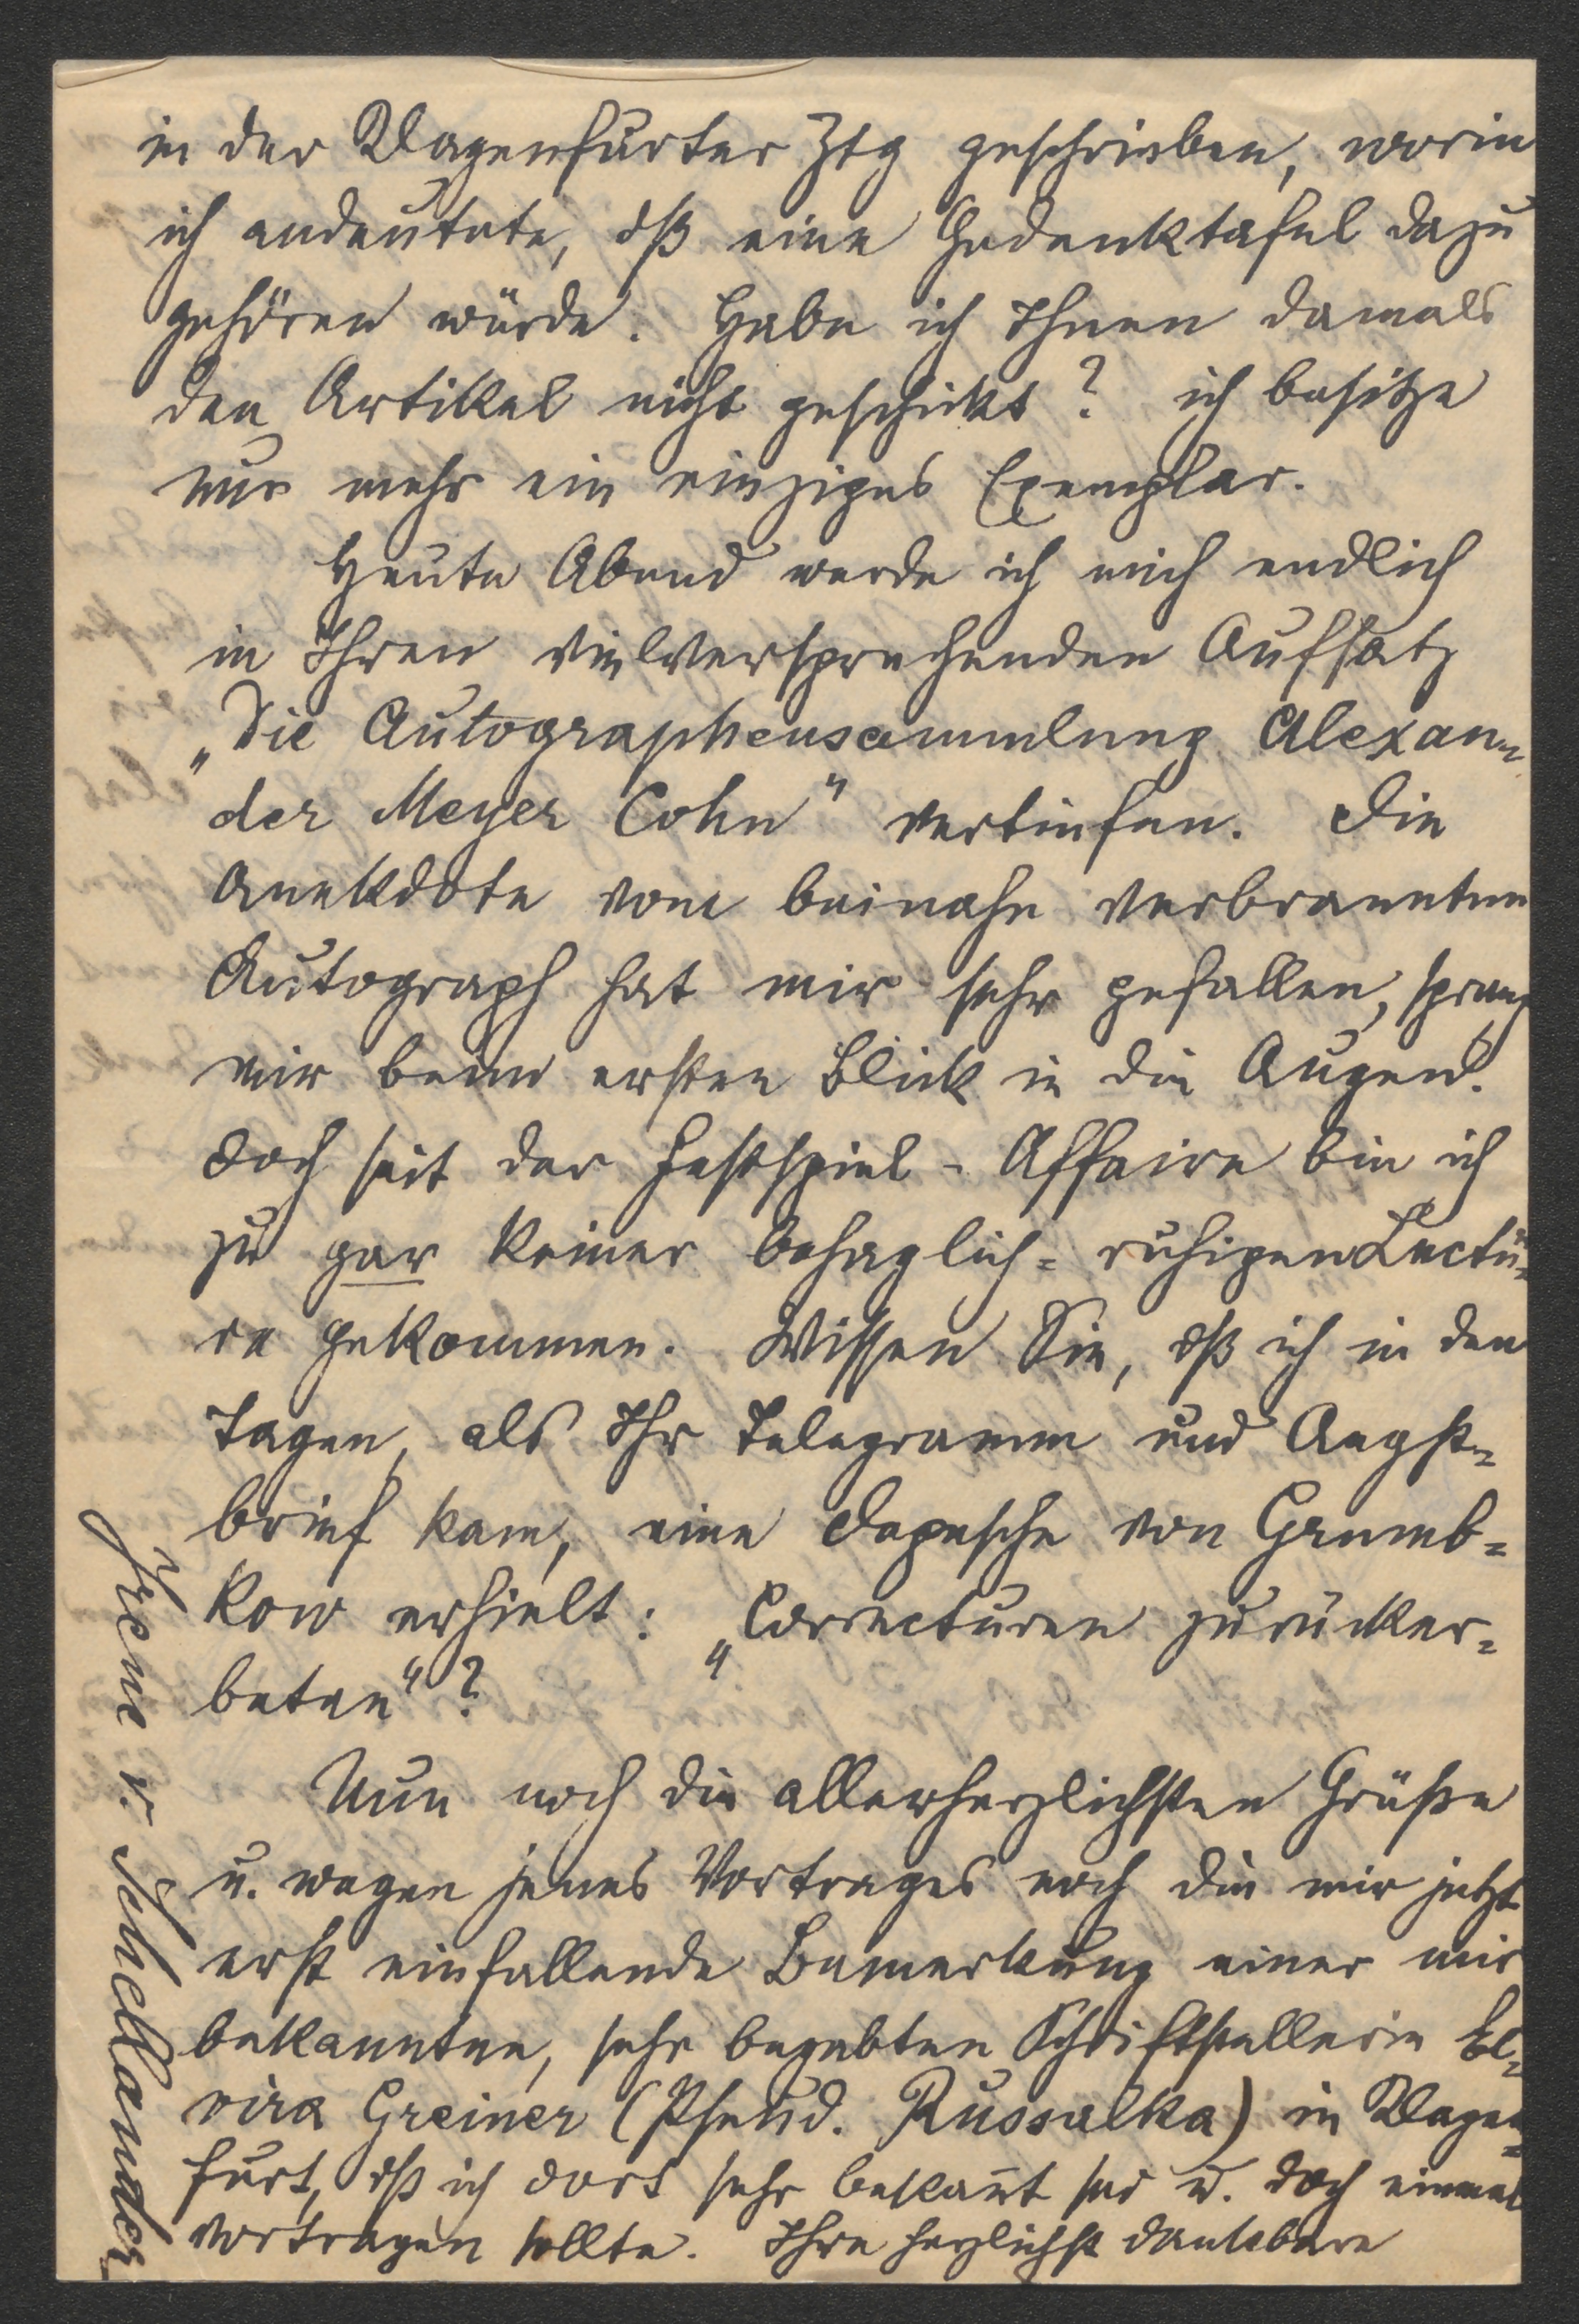 in der Klagenfurter Ztg geschrieben, worin
ich andeutete, dß eine Gedenktafel dazu
gehören würde. Habe ich Ihnen damals
den Artikel nicht geschickt? ich besitze
nur mehr ein einziges Exemplar.
Heute Abend werde ich mich endlich
in Ihren vielversprechenden Aufsatz
„Die Autographensammlung Alexan=
der Meyer Cohn" vertiefen. Die
Anekdote vom beinahe verbrannten
Autograph hat mir sehr gefallen, sprang
mir beim ersten Blick in die Augen.
Doch seit der Festspiel-Affaire bin ich
zu gar keiner behaglich=ruhigen Lectü=
re gekommen. Wissen Sie, dß ich in den
Tagen, als Ihr Telegramm und Angst=
brief kam, eine Depesche von Grumb=
kow erhielt: „Correcturen zurücker=
beten“?
Nun noch die allerherzlichsten Grüße
u. wegen jenes Vortrages noch die mir jetzt
erst einfallende Bemerkung einer mir
bekannten, sehr begabten Schriftstellerin El=
vira Greiner (Pseud. Russalka) in Klagen=
furt, dß ich dort sehr bekañt sei u. doch einmal
vortragen sollte. Ihre herzlichst dankbare
Irene v. Schellander